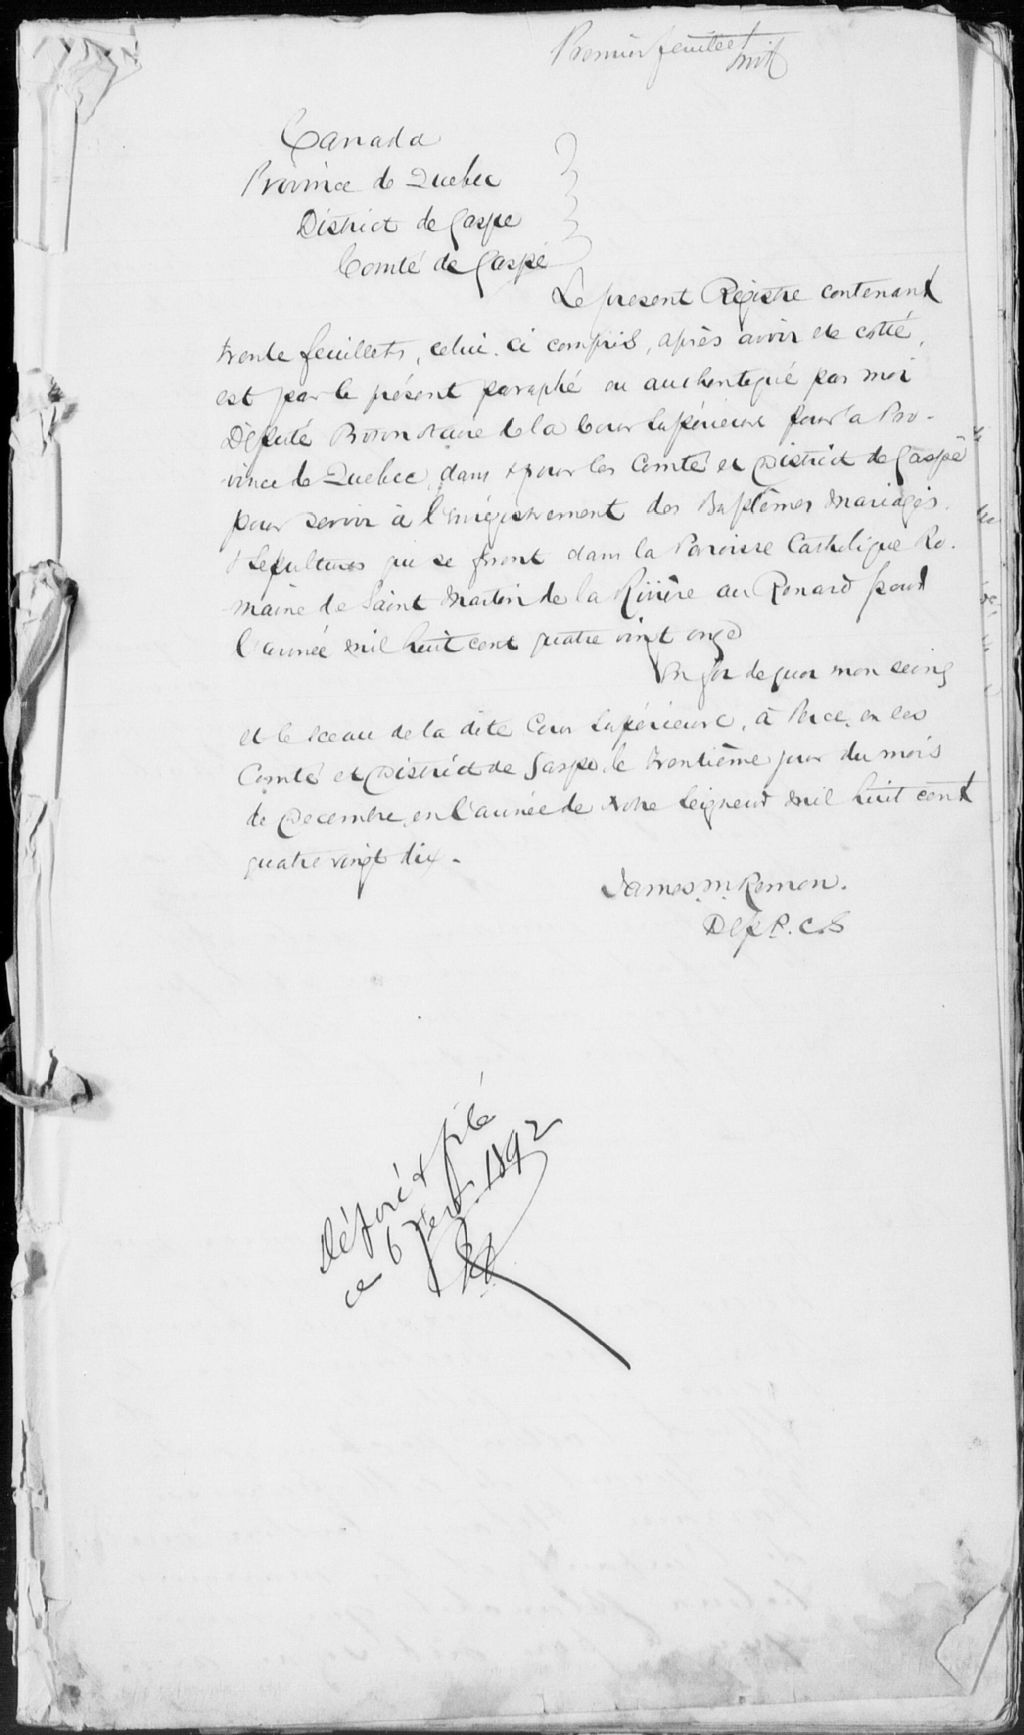 Premier feuillet
Canada
Province de Quebec
District de Gaspe
Comté de Gaspé
Le present Régistre contenant
trente feuillets, celui-ci compris, après avoir eté cotté,
est par le présent paraphé ou authentiqué par moi
Député Protonotaire de la Cour Supérieure pour la Pro-
vince de Quebec, dans & pour les Comté et District de Gaspé
pour servir à l'enrégistrement des Baptêmes Mariages
& Sépultures qui se feront dans la Paroisse Catholique Ro-
maine de Saint Martin de la Rivière au Renard pour
l'année mil huit cent quatre vingt onze
En foi de quoi mon seing
et le sceau de la dite Cour Supérieure, à Percé, en les
Comté et District de Gaspe, le trentième jour du mois
de Decembre, en l'année de notre Seigneur mil huit cent
quatre vingt dix.
James. M. Remon.
Dep P. C. S
Déposé & filé
ce 6 1892